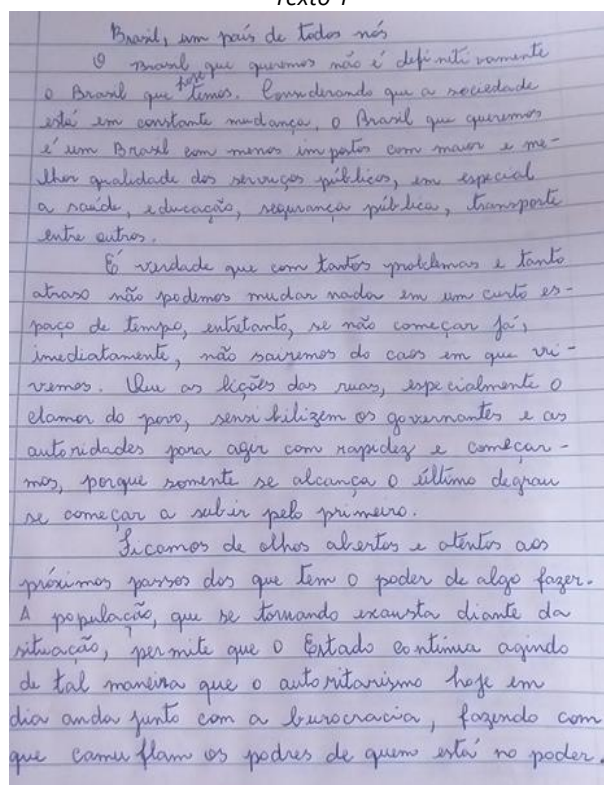 Texto 1
Brasil, um país de todos nós
O Brasil que queremos não é definitivamente
o Brasil que hoje temos. Considerando que a sociedade
está em constante mudança, o Brasil que queremos
é um Brasil com menos impostos com maior e me-
lhor qualidade dos serviços públicos, em especial
a saúde, educação, segurança pública, transporte
entre outros.
É verdade que com tantos problemas e tanto
atraso não podemos mudar nada em um curto es-
paço de tempo, entretanto, se não começar já,
imediatamente, não sairemos do caos em que vi-
vemos. Que as lições das ruas, especialmente o
clamor do povo, sensibilizem os governantes e as
autoridades para agir com rapidez e começar-
mos, porque somente se alcança o último degrau
se começar a subir pelo primeiro.
Ficamos de olhos abertos e atentos aos
próximos passos dos que tem o poder de algo fazer.
A população, que se tornando exausta diante da
situação, permite que o Estado continua agindo
de tal maneira que o autoritarismo hoje em
dia anda junto com a burocracia, fazendo com
que camuflam os podres de quem está no poder.